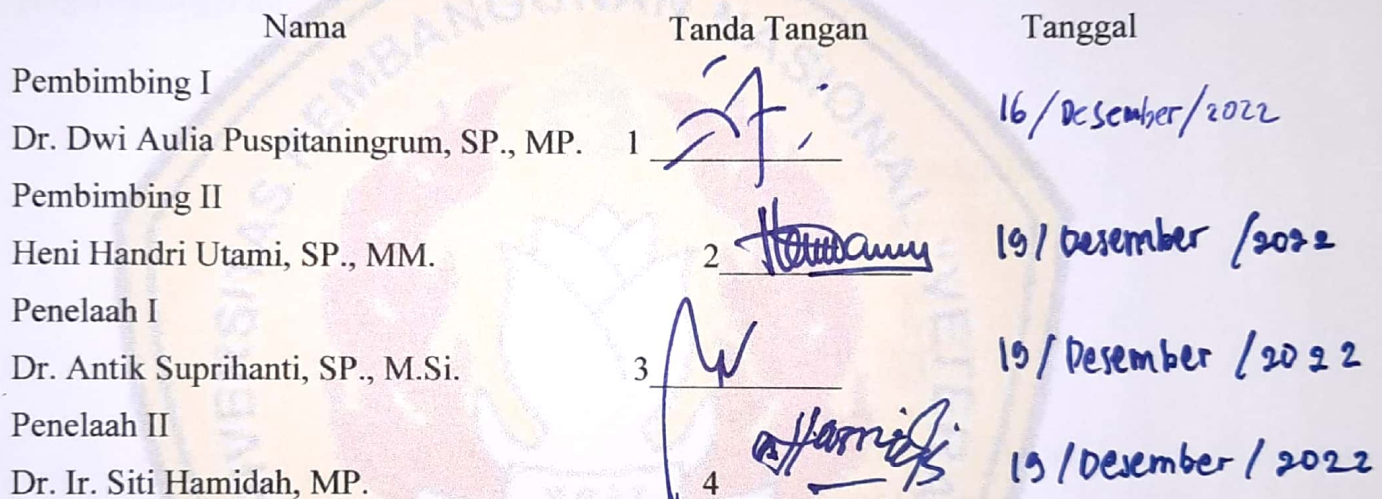 Nama Tanda Tangan Tanggal
Pembimbing I
16/Desember/2022
Dr. Dwi Aulia Puspitaningrum, SP., MP. 1
Pembimbing II
Heni Handri Utami, SP., MM. 2 19/Desember/2022
Penelaah I
Dr. Antik Suprihanti, SP., M.Si. 3 19/Desember/2022
Penelaah II
Dr. Ir. Siti Hamidah, MP. 4 19/Desember/2022